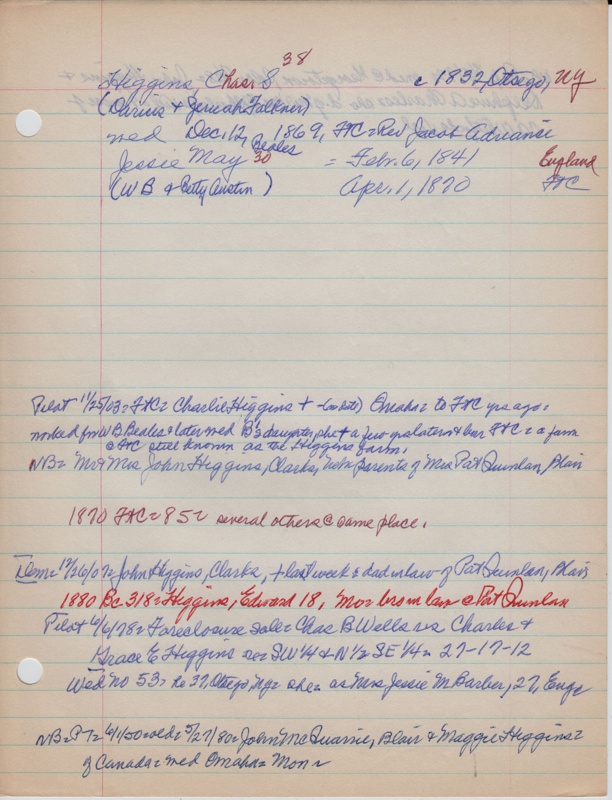 38
Higgins, Chas. S. c 1832, Otsego, NY
(Ohrius & Jeruah Falkner)
wed Dec. 12, 1869, FtC = Rev Jacob Adriance
Jessie May Beales 30 = Feb. 6, 1841 England
(WB & Betty Austin) Apr. 1, 1870 FtC
Pilot 11/25/03 = FtC = Charlie Higgins + (no date) Omaha = to FtC yrs ago =
worked for WB Beales & later wed B's daughter, she + a few yrs later near FtC = a farm
@ FtC still known as the Higgins farm.
NB = Mr & Mrs John Higgins, Clarks, Neb = parents of Mrs Pat Quinlan, Blair
1870 FtC = 85 = several others @ same place.
Dem = 12/26/07 = John Higgins, Clarks, + last week = dad in law of Pat Quinlan, Blair
1880 Bc 318 = Higgins, Edward 18, Mo = bro in law @ Pat Quinlan
Pilot 6/6/78 = Foreclosure sale = Chas B Wells vs Charles &
Grace E Higgins re = SW 1/4 & N 1/2 SE 1/4 = 27-17-12
Wed no 53 = he 37, Otsego, NY = she = as Mrs Jessie M Barber, 27, Eng
NB = wed = 5/27/80 = John McQuarrie, Blair & Maggie Higgins =
of Canada = wed Omaha = Mon